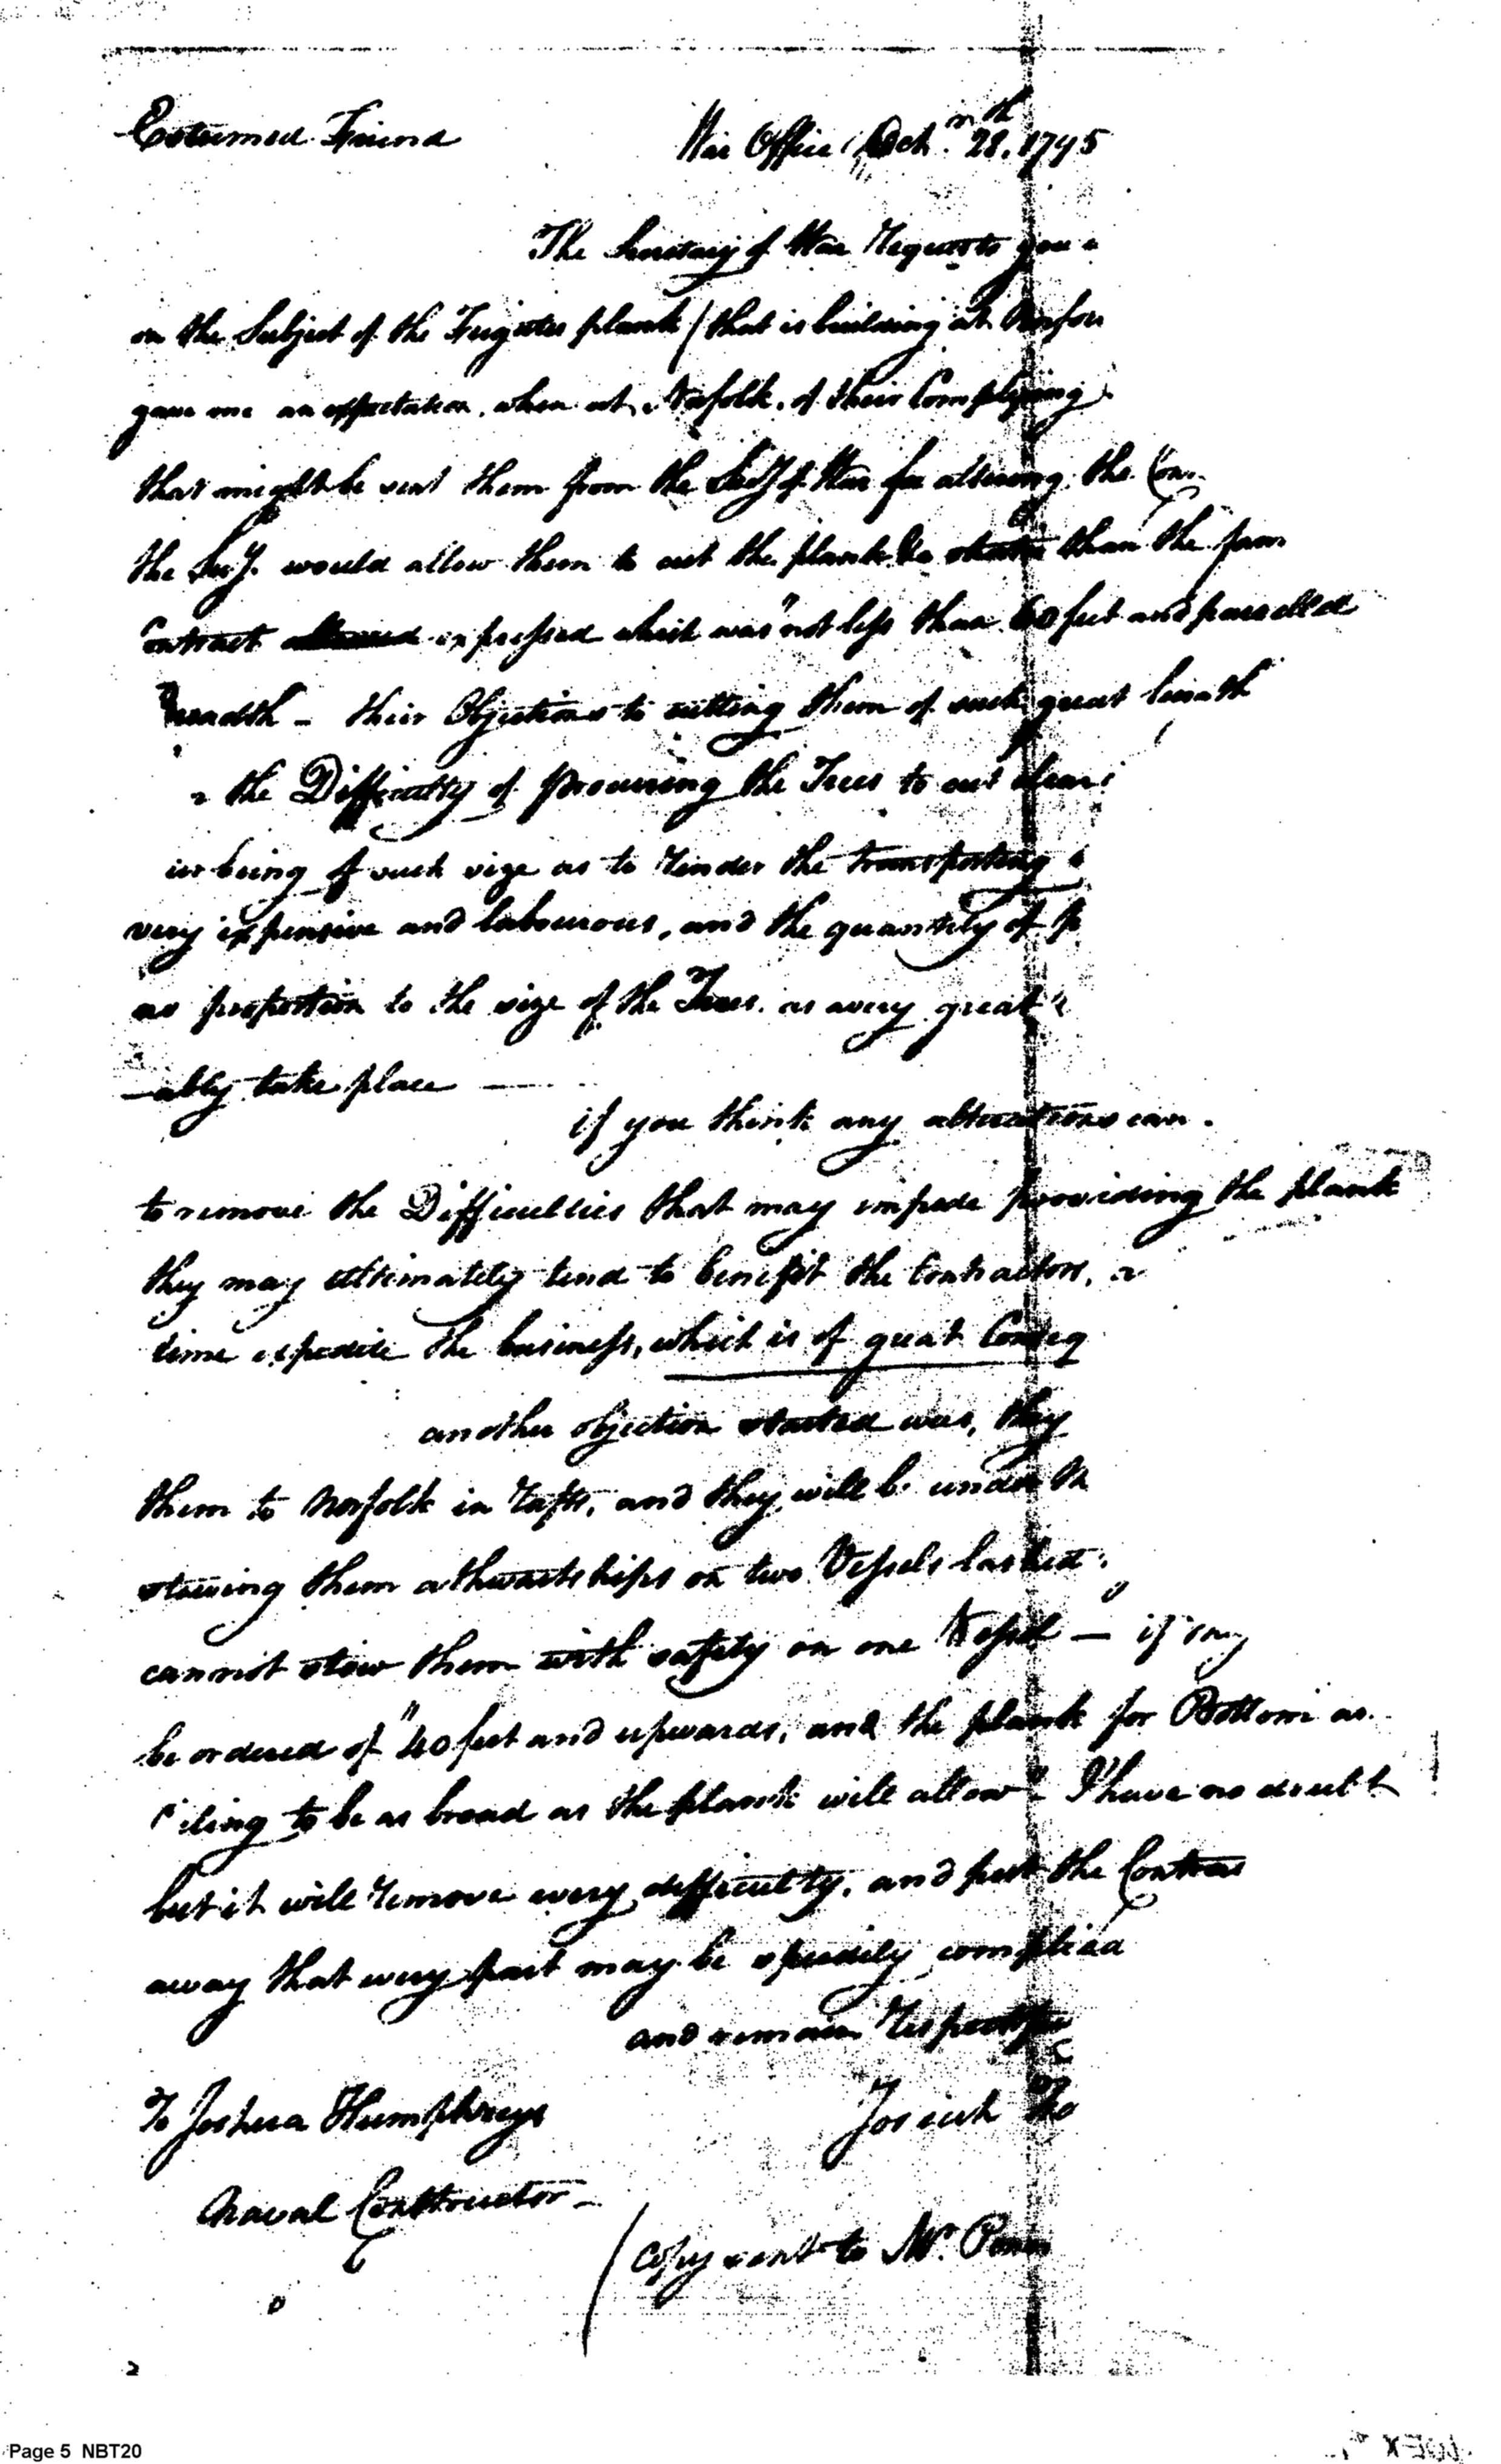 Esteemed Friend War Office Octr. 28th. 1795
The Secretary of War Requests you
on the Subject of the Frigates plank / that is building at Norfol
gave me an expectation, when at Norfolk, of their Complying
that might be sent them from the Secy of War for altering the Con
the Secy. would allow them to cut the plank shorter than the
Contract allowed expressed which was "not less than 60 feet and parrelled
Breadth - their Objections to cutting them of such great length
the Difficulty of procuring the Trees to cut them
being of such size as to render the transporting
very expensive and labourous, and the quantity of p
no proportion to the size of the Trees. as a very great
-ably take place —
if you think any alterations can
to remove the Difficulties that may impede providing the plank
they may ultimately tend to benefit the Contractors, a
time expedite the business, which is of great Conseq
another objection started was, they
them to Norfolk in rafts, and they will be under th
stowing them athwartships on two Vessels lashed
cannot stow them with safety on one Vessel — if
be ordered of "40 feet and upwards, and the plank for Bottom
to be as broad as the plank will allow" I have no doubt
but it will remove every difficulty, and put the Contrac
away that every part may be speedily complied
and remain Respectfu
To Joshua Humphreys Josiah Fo
Naval Constructor —
(Copy sent to Mr.
Page 5 NBT20